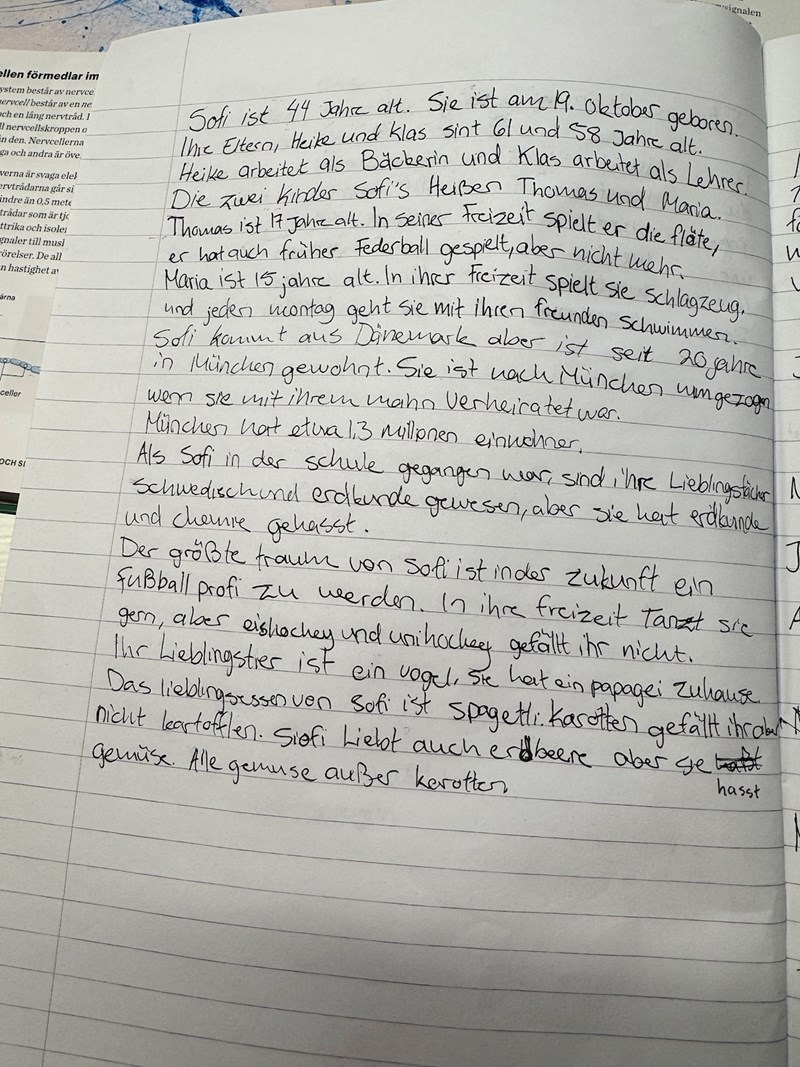 signalen
ellen förmedlar im
ystem består av nervce
nervcell består av en ne
och en lång nervtråd. I
ll nervcellskroppen o
in den. Nervcellerna
ga och andra är öve
verna är svaga elek
ervtrådarna går si
indre än 0,5 mete
trådar som är tjo
ttrika och isole
gnaler till musl
rörelser. De all
n hastighet av
ärna
celler
OCH SI
Sofi ist 44 Jahre alt. Sie ist am 19. Oktober geboren.
Ihre Eltern, Heike und Klas sint 61 und 58 Jahre alt.
Heike arbeitet als Bäckerin und Klas arbeitet als Lehrer.
Die zwei Kinder Sofi's Heißen Thomas und Maria.
Thomas ist 17 Jahre alt. In seiner Freizeit spielt er die flöte,
er hat auch früher Federball gespielt, aber nicht mehr.
Maria ist 15 jahre alt. In ihrer Freizeit spielt sie schlagzeug,
und jeden montag geht sie mit ihren freunden schwimmen.
Sofi kommt aus Dänemark aber ist seit 20 jahre
in München gewohnt. Sie ist nach München umgezogen
wenn sie mit ihrem mahn verheiratet war.
München hat etwa 1,3 millionen einwohner.
Als Sofi in der schule gegangen war, sind ihre Lieblingsfächer
schwedisch und erdkunde gewesen, aber sie hat erdkunde
und chemie gehasst.
Der größte traum von Sofi ist in der zukunft ein
fußball profi zu werden. In ihre freizeit Tanzt sie
gern, aber eishockey und unihockey gefällt ihr nicht.
Ihr Lieblingstier ist ein vogel, sie hat ein papagei zuhause.
Das lieblingsessen von Sofi ist spagetti. Karotten gefällt ihr aber
nicht kartofflen. Siofi Liebt auch erdbeere aber sie
hasst
gemüse. Alle gemuse außer kerotten